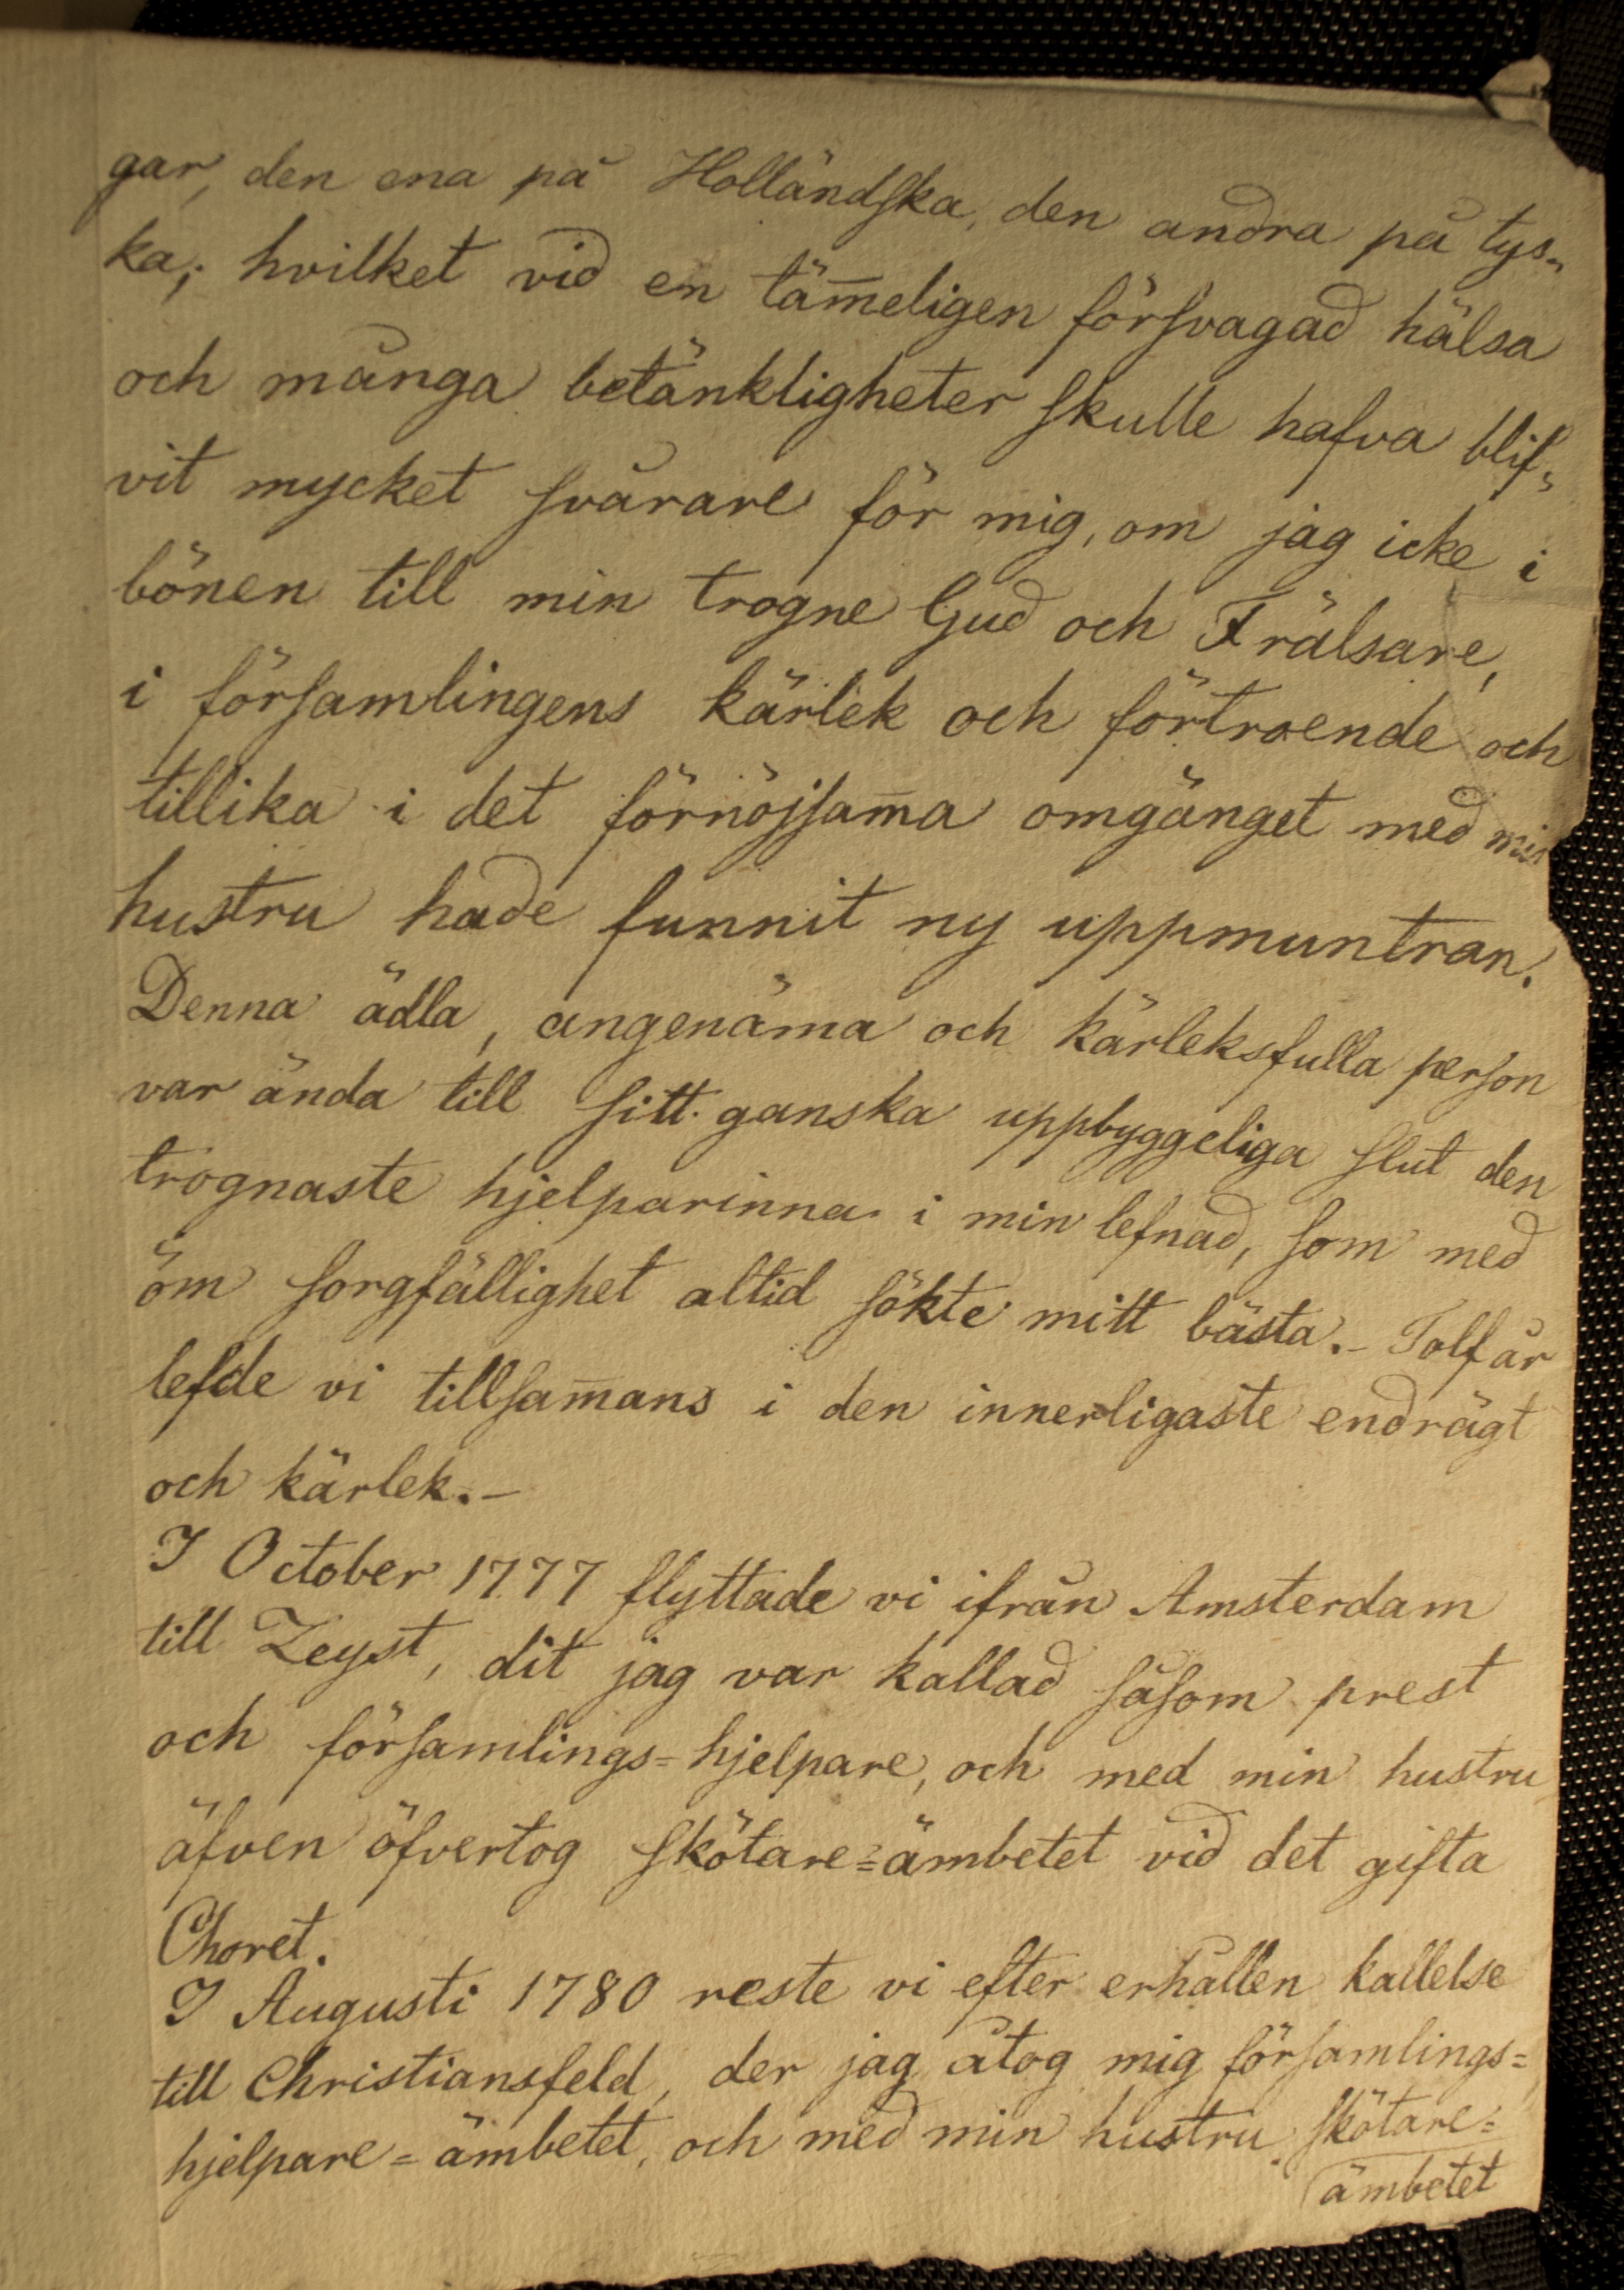 gar, den ena på Holländska, den andra på tys„
ka; hvilket vid en täm̅eligen försvagad hälsa
och många betänkligheter skulle hafva blif„
vit mycket svårare för mig, om jag icke i
bönen till min trogne Gud och Frälsare,
i församlingens kärlek och förtroende och
tillika i det förnöjsam̅a omgänget med min
hustru hade funnit ny uppmuntran.
Denna ädla, angenäma och kärleksfulla person
var ända till sitt ganska uppbyggeliga slut den
trognaste hjelparinna i min lefnad, som med
öm sorgfällighet altid sökte mitt bästa.- Tolf år
lefde vi tillsam̅ans i den innerligaste endrägt
och kärlek.-
I October 1777 flyttade vi ifrån Amsterdam
till Zeyst, dit jag var kallad såsom prest
och församlings=hjelpare, och med min hustru
äfven öfvertog skötare=ämbetet vid det gifta
Choret.
I Augusti 1780 reste vi efter erhållen kallelse
till Christiansfeld, der jag åtog mig församlings=
hjelpare=ämbetet, och med min hustru skötare=
ämbetet